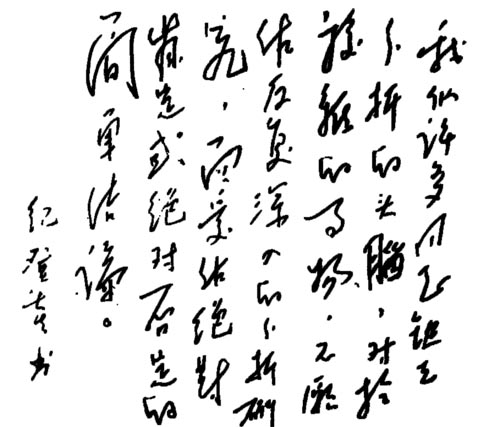 我们许多同志缺乏
分析的头腦，对於
複雜的事物，不愿
作反复深入的分析研
究，而爱作绝對
肯定或绝对否定的
简单结論。
纪登奎书